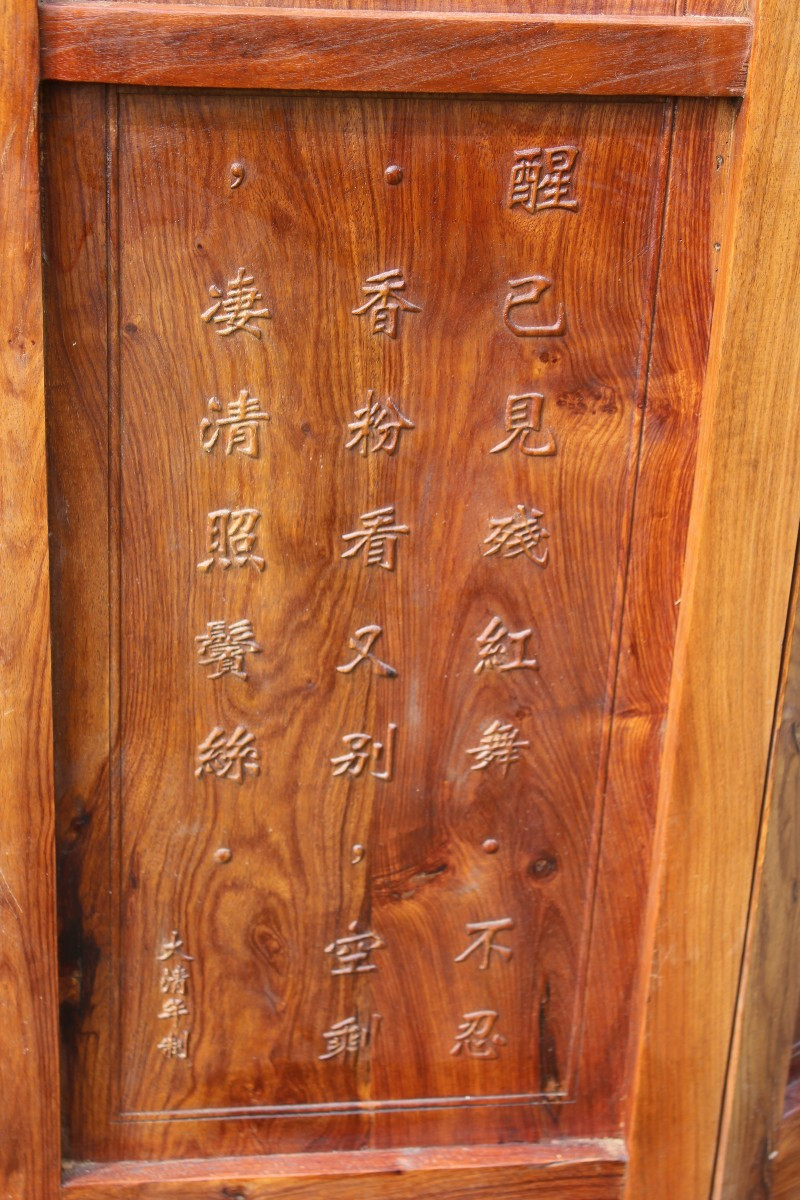 醒己見残紅舞．不忍
．香粉看又別，空剩
，凄清照鬢絲．
大清年制